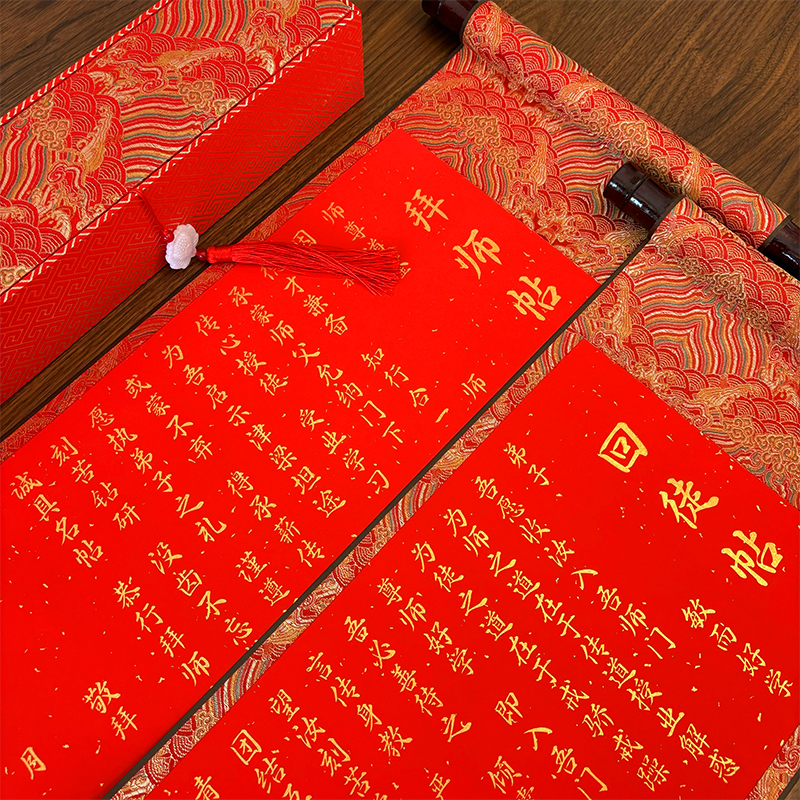 拜师帖
师尊道
才兼备 知行合一
承蒙师父允纳门下
传心授徒 受业学习
为吾启示津梁坦途
或蒙不弃 得承薪传
愿执弟子之礼 谨遵
刻苦钻研 没齿不忘
诚具名帖 恭行拜师
敬拜
月
回徒帖
弟子
敏而好学
吾愿收汝入吾师门
为师之道在于传道授业解惑
为徒之道在于戒骄戒躁
尊师好学 即入吾门
吾必善待之 倾
言传身教
望汝刻苦
团结
青